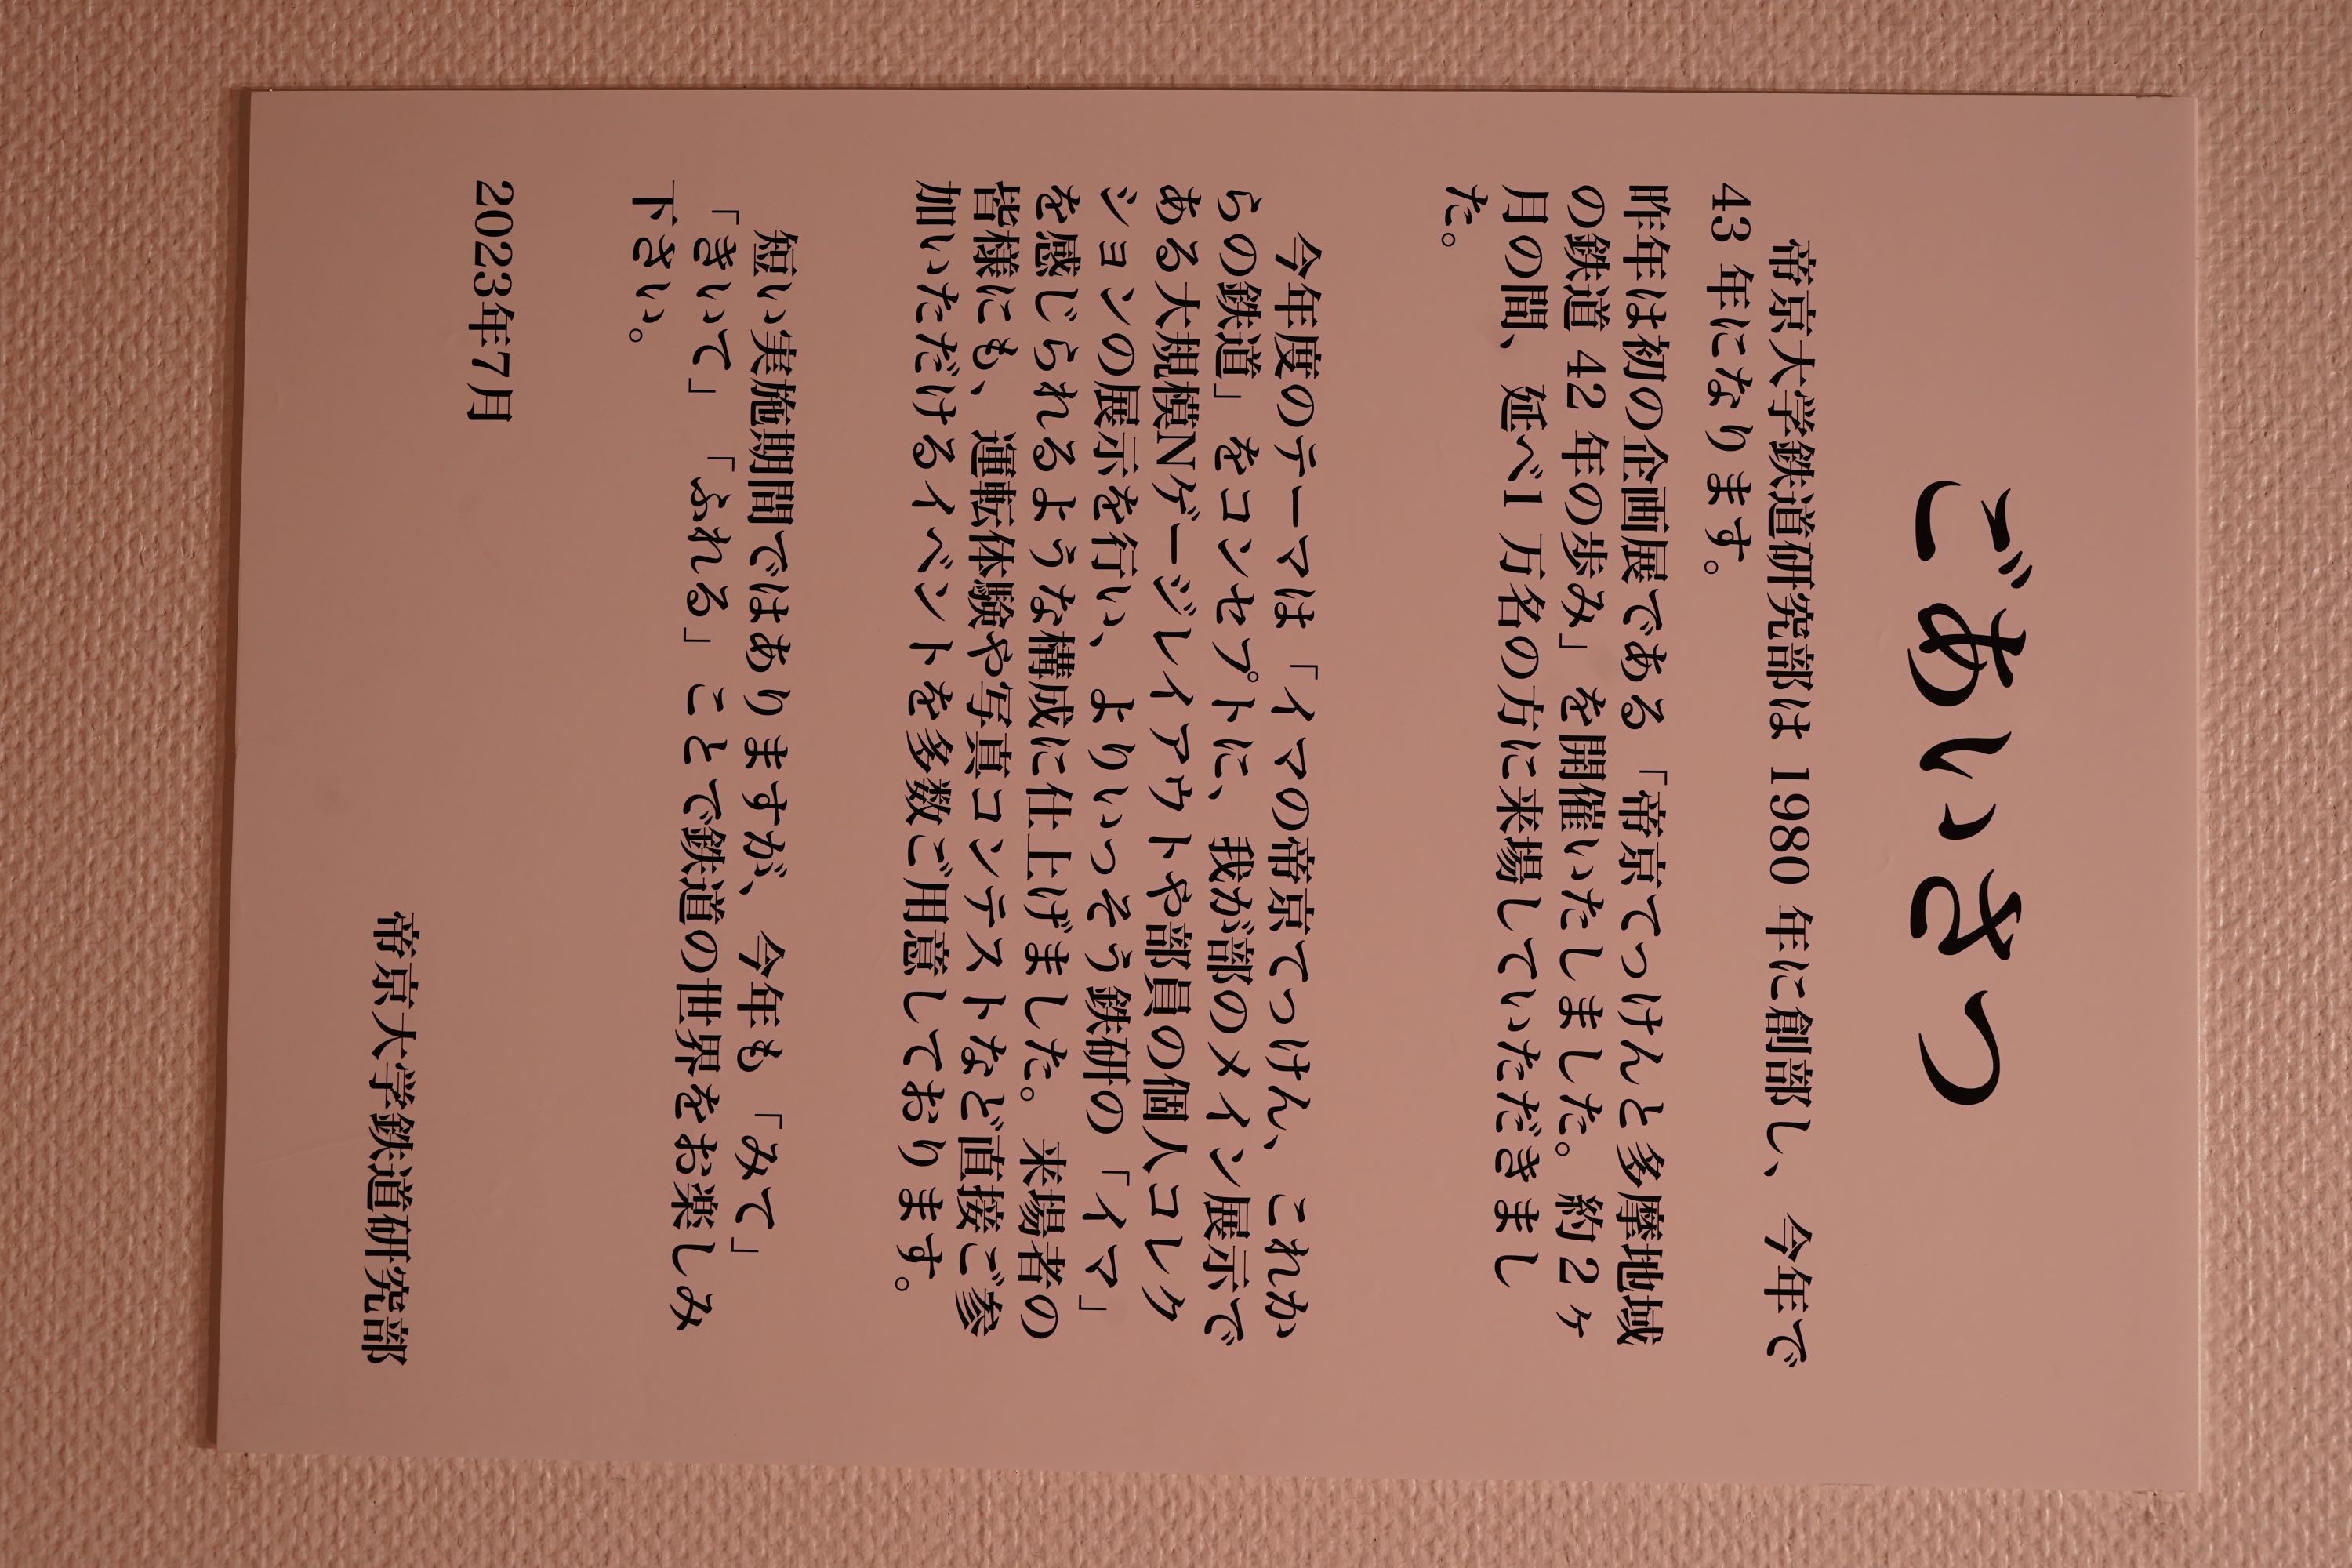 ごあいさつ
帝京大学鉄道研究部は 1980 年に創部し、今年で
43 年になります。
昨年は初の企画展である「帝京てっけんと多摩地域
の鉄道 42 年の歩み」を開催いたしました。約２ヶ
月の間、延べ1 万名の方に来場していただきまし
た。
今年度のテーマは「イマの帝京てっけん、これか
らの鉄道」をコンセプトに、我が部のメイン展示で
ある大規模Nゲージレイアウトや部員の個人コレク
ションの展示を行い、よりいっそう鉄研の「イマ」
を感じられるような構成に仕上げました。来場者の
皆様にも、運転体験や写真コンテストなど直接ご参
加いただけるイベントを多数ご用意しております。
短い実施期間ではありますが、今年も「みて」
「きいて」「ふれる」ことで鉄道の世界をお楽しみ
下さい。
2023年7月
帝京大学鉄道研究部